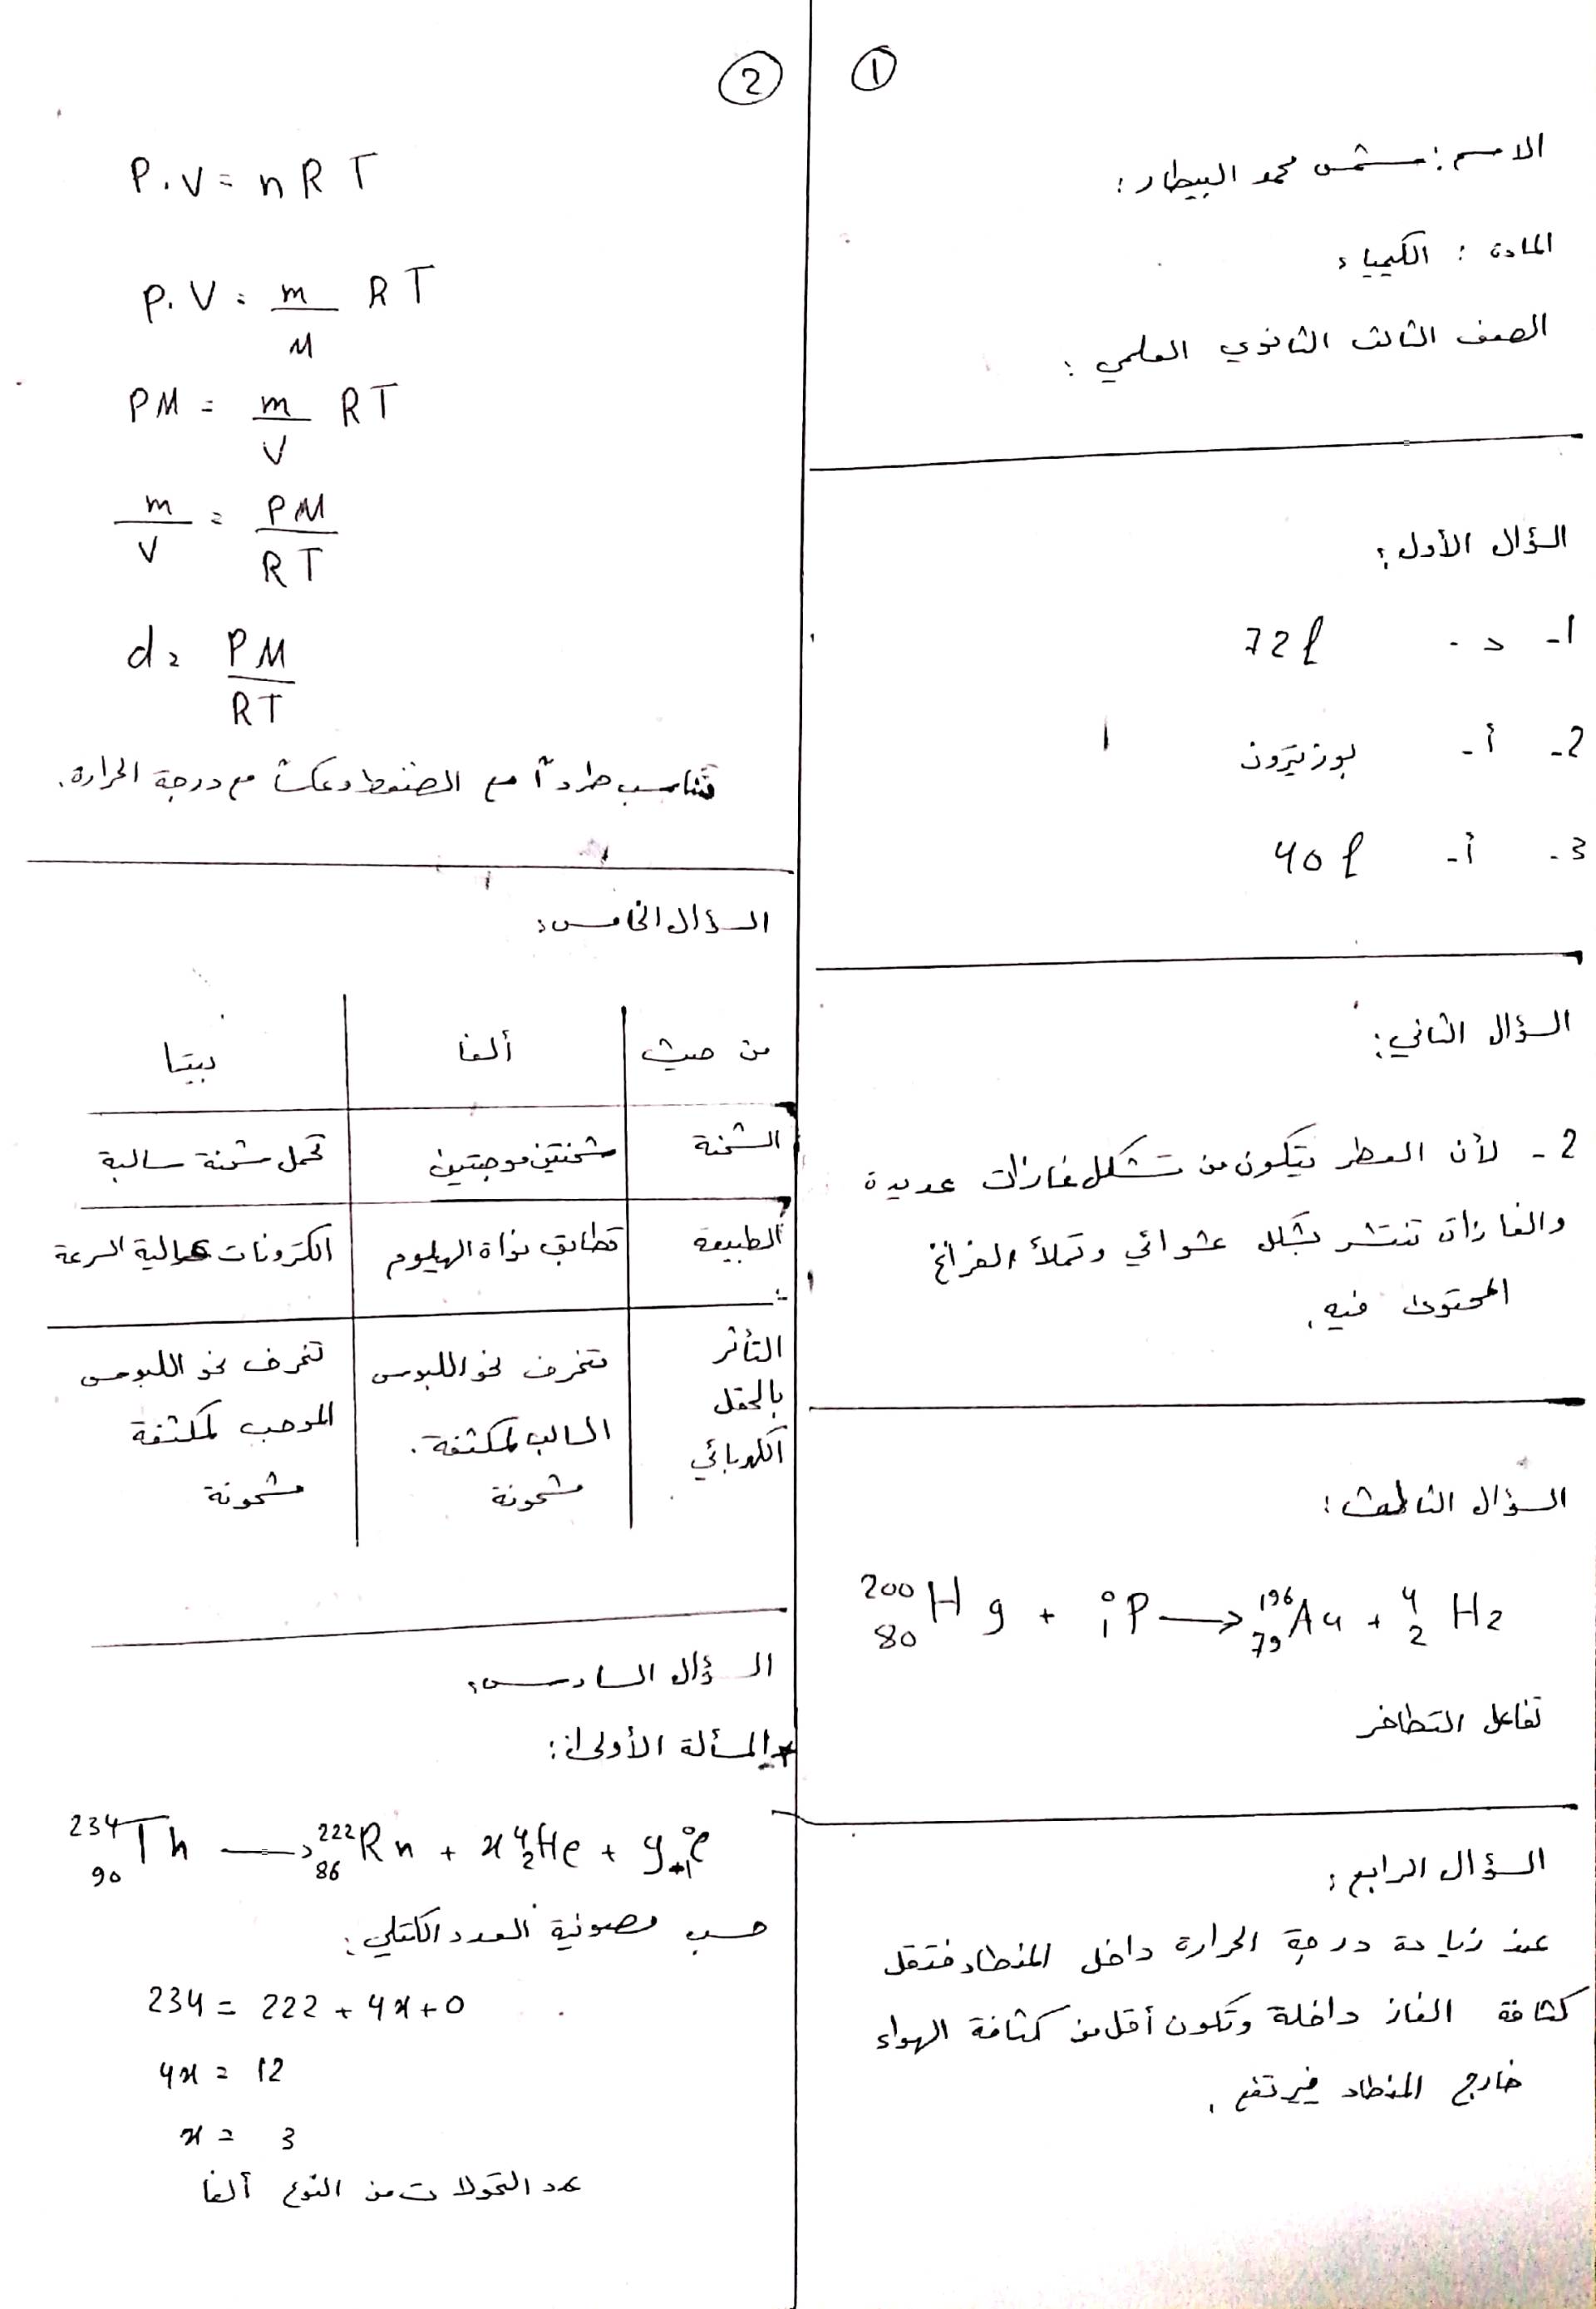 ①
الاسم : شمس محمد البيطار :
المادة : الكيمياء
الصف الثالث الثانوي العلمي :
السؤال الأول :
1- د - 72 l
2- أ- بوزيترون
3- أ- 40 l
السؤال الثاني :
2- لأن العطر يتكون من تشكل غازات عديدة
والغازات تنتشر بشكل عشوائي وتملأ الفراغ
المحتوى فيه .
السؤال الثالث :
²⁰⁰₈₀Hg + ⁰₁P → ¹⁹⁶₇₉Au + ⁴₂He
تفاعل التطافر
السؤال الرابع :
عند زيادة درجة الحرارة داخل المنطاد فتقل
كثافة الغاز داخلة وتكون أقل من كثافة الهواء
خارج المنطاد فيرتفع .
②
P.V = n R T
P.V = m/M R T
PM = m/V R T
m/V = PM/RT
d = PM/RT
تتناسب طرداً مع الضغط وعكساً مع درجة الحرارة .
السؤال الخامس :
من حيث | ألفا | بيتا
الشحنة | شحنتين موجبتين | تحمل شحنة سالبة
الطبيعة | تطابق نواة الهيليوم | الكترونات عالية السرعة
التأثر بالحقل الكهربائي | تنحرف نحو اللبوس السالب لمكثفة مشحونة | تنحرف نحو اللبوس الموجب لمكثفة مشحونة
السؤال السادس :
* المسألة الأولى :
²³⁴₉₀Th → ²²²₈₆Rn + x ⁴₂He + y ⁰₋₁e
حسب مصونية العدد الكتلي :
234 = 222 + 4x + 0
4x = 12
x = 3
عدد التحولات من النوع ألفا